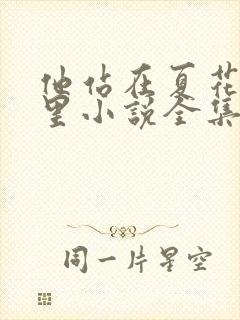 他站在夏花
里小说全集
同一片星空